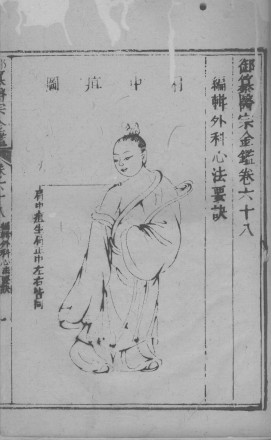 御纂醫宗金鑑卷六十八
編輯外科心法要訣
肩中疽圖
肩中疽生肩正中左右皆同
御纂醫宗金鑑
卷六十八
編輯外科心法要訣